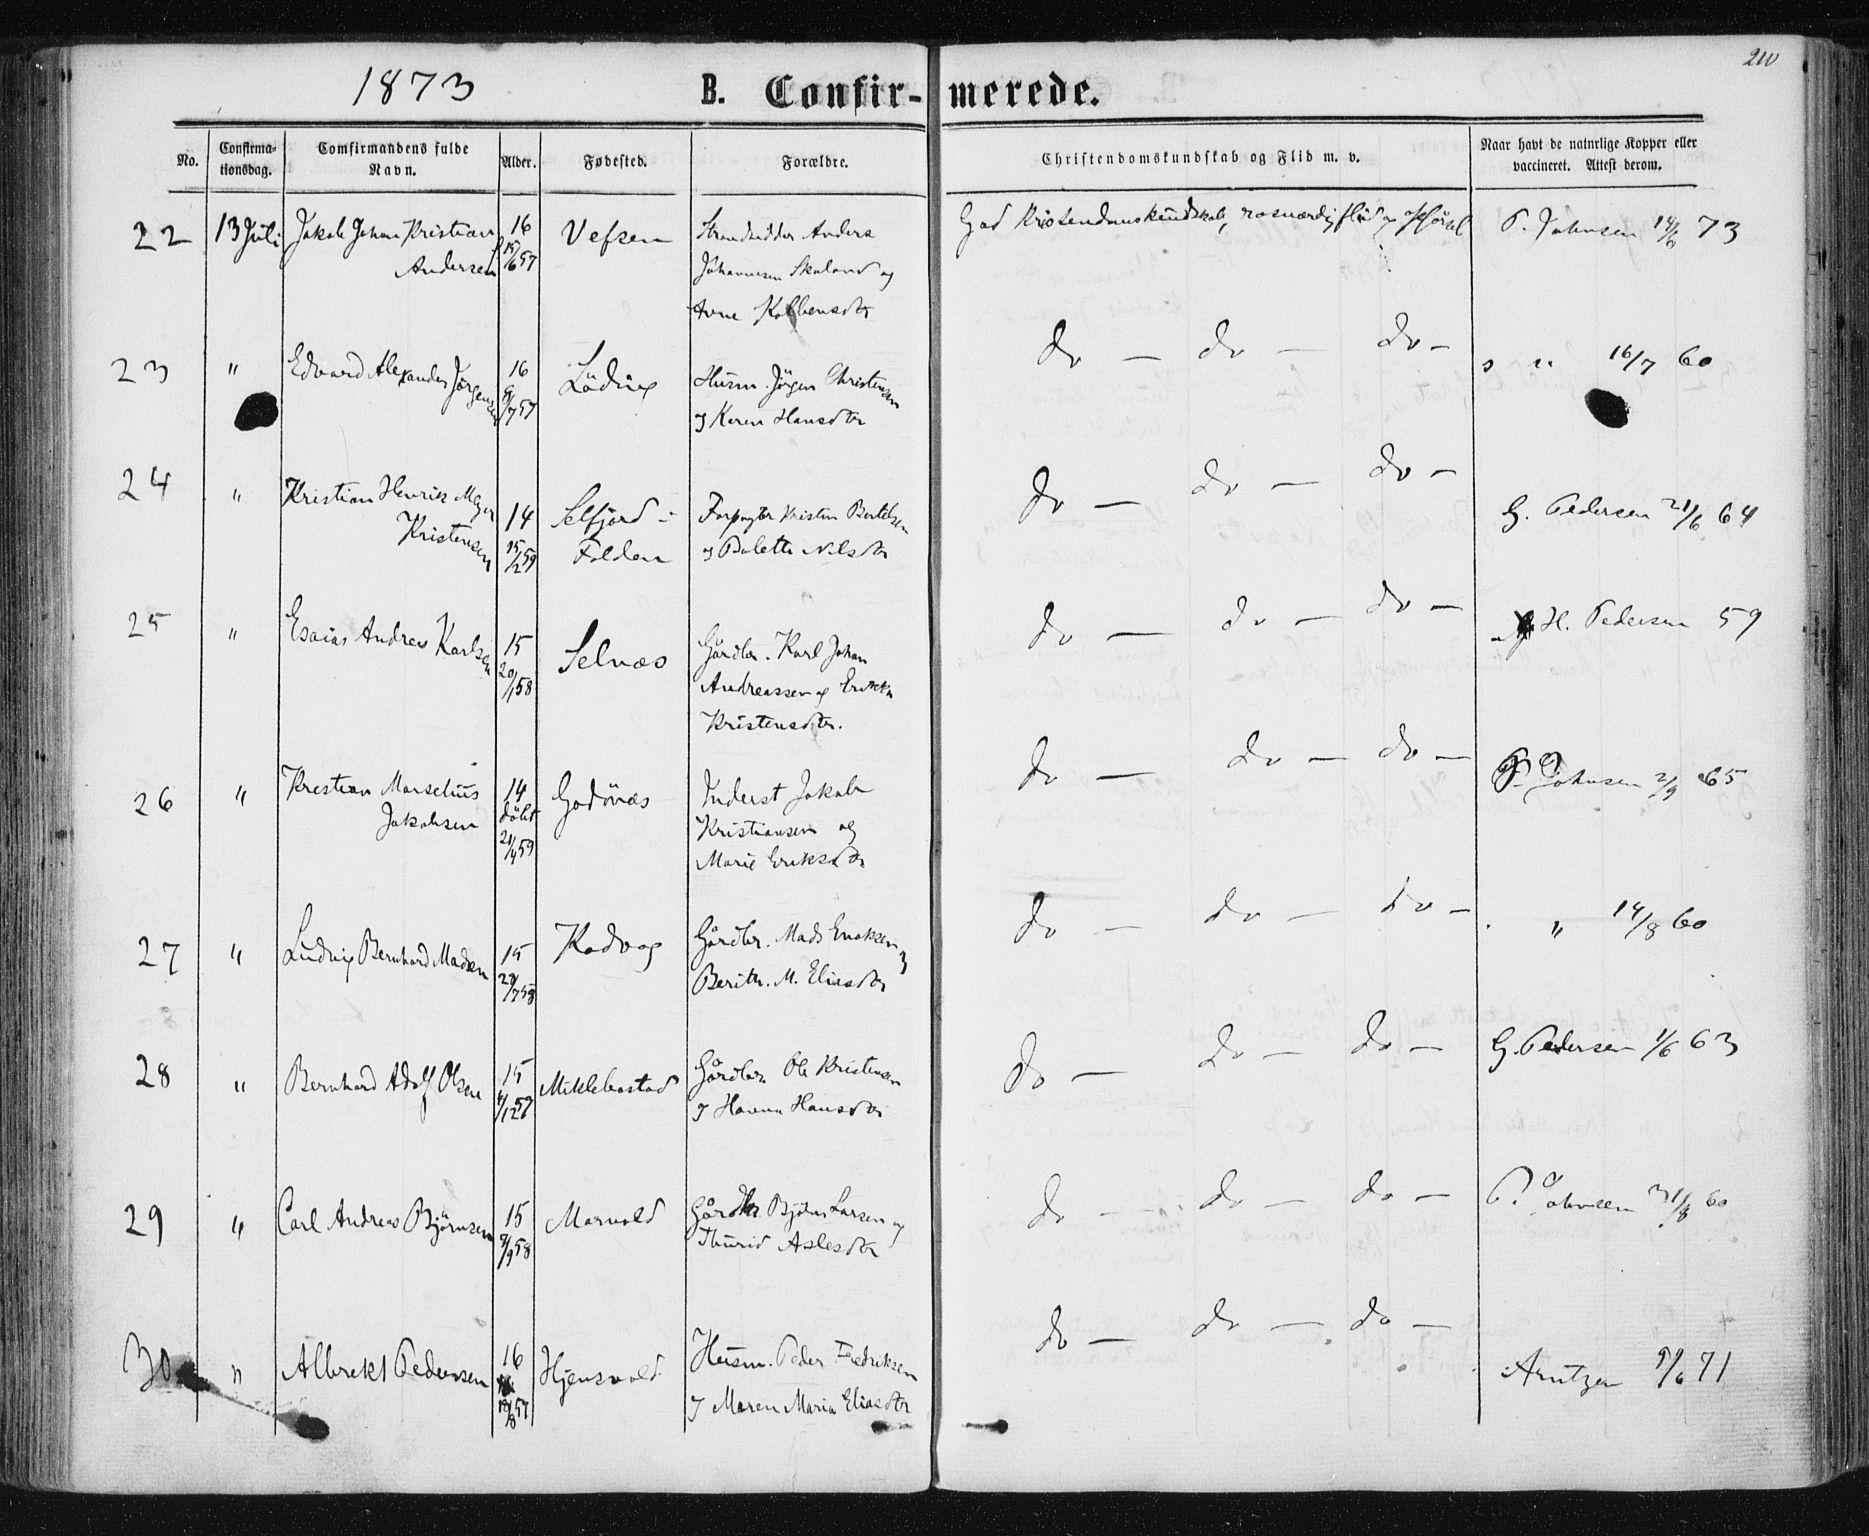 210
1873
B. Confir- merede.
No.
Confirma-
tionsdag.
Comfirmandens fulde
Navn.
Alder.
Fødested.
Forældre.
Christendomskundskab og Flid m. v.
Naar havt de naturlige Kopper eller
vaccineret. Attest derom.
22 13 Juli Jakob Johan Kristian 16 Vefsen Strandsidder Anders God Kristendomskundskab, rosværdig flid og P. Johnsen 14/6 73
Andersen 57 Johannesen Skaland og
Anne
23 " Edvard Alexander Jørgensen 16 Löding Husm. Jörgen Christensen do — do — do — " 16/7 60
9/7 57 og Karen Hansdtr
24 " Kristian Henrik Meyer 14 Selfjord i Forpagter Kristen Bertelsen do — do — do — G. Pedersen 21/6 64
Kristensen 15/2 59 Folden og Balette Nilsdtr
25 " Esaias Andreas Karlsen 15 Selnæs Gårdbr. Karl Johan do — do — do — H. Pedersen 59
20/1 58 Andreassen og
Kristensdtr.
26 " Kristian Marselius 14 Godönæs Inderst Jakob do — do — do — P. Johnsen 2/9 65
Jakobsen döbt Kristiansen og
21/4 59 Marie Eriksdtr
27 " Ludvig Bernhard Madsen 15 Kodvag Gårdbr. Mads Enoksen og do — do — do — " 14/8 60
58 Berith. M. Eliasdtr
28 " Bernhard Adolf Olsen 15 Mikklebostad Gårdbr. Ole Kristensen do — do — do — G. Pedersen 1/6 63
4/12 57 og Hanna Hansdtr
29 " Carl Andreas Björnsen 15 Marvold Gårdbr. Björn Larsen og do — do — do — P. Johnsen 31/8 60
9/9 58 Thurid Aslesdtr
30 " Albrekt Pedersen 16 Hjensvold Husm. Peder Fredriksen do — do — do — Arntzen 9/6 71
18/8 57 og Maren Maria Eliasdtr